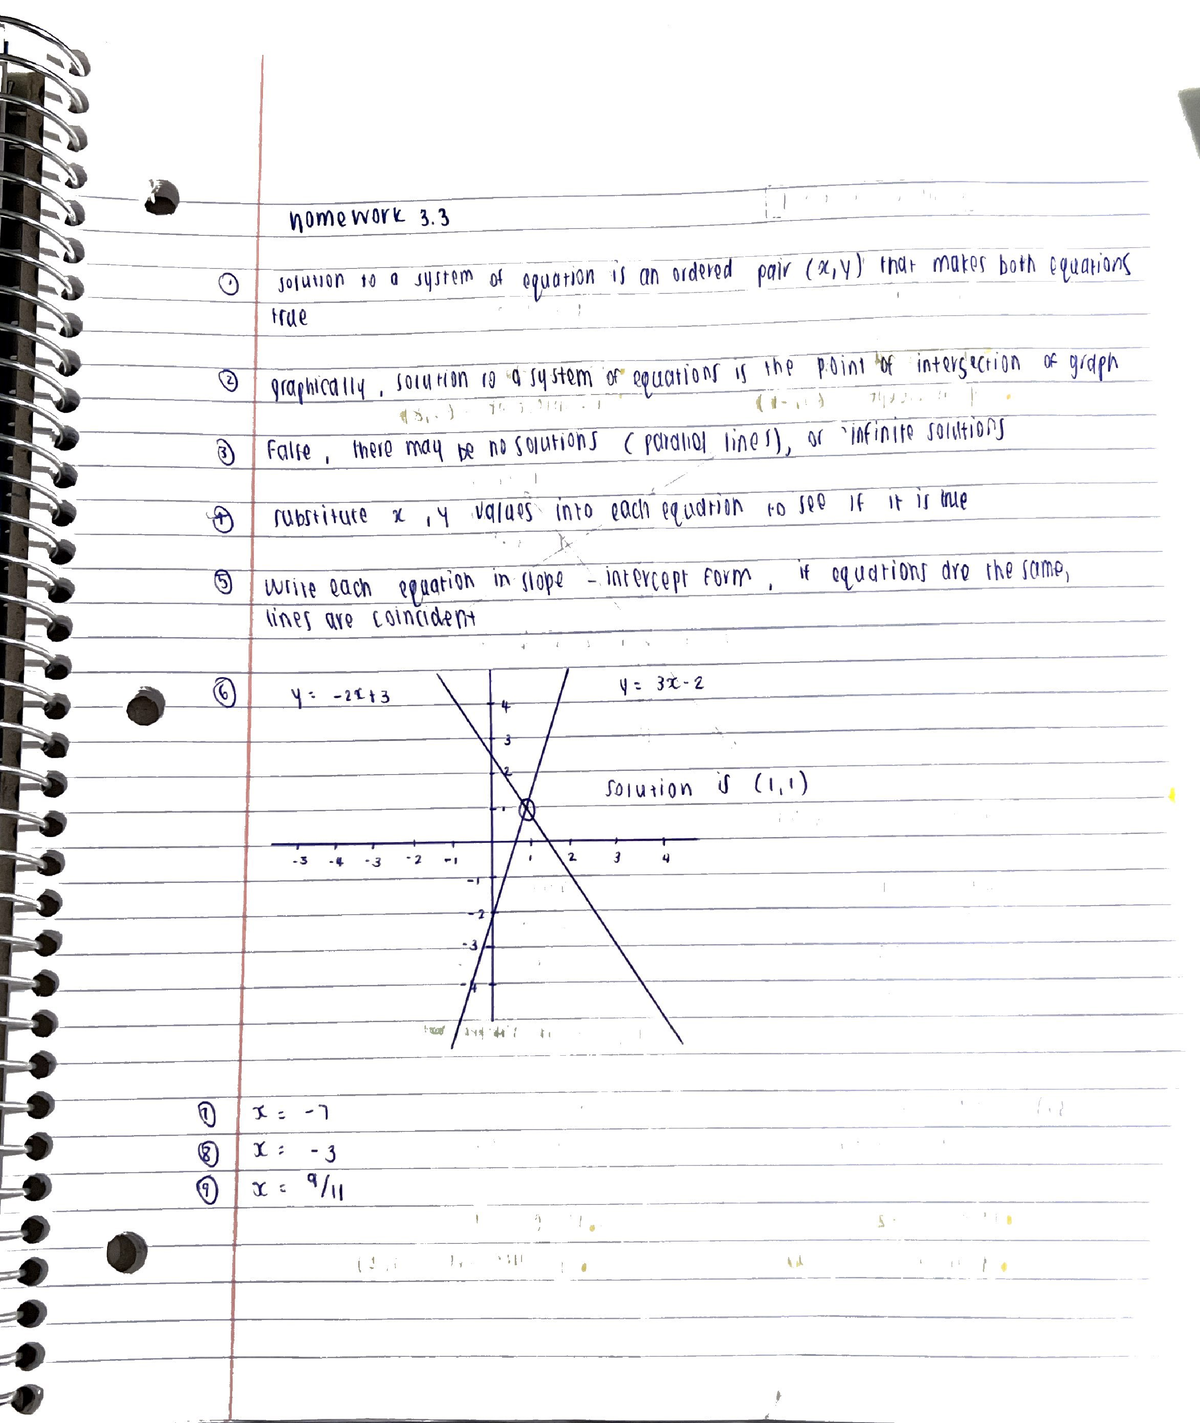 homework 3.3
① solution to a system of equation is an ordered pair (x,y) that makes both equations
true
② graphically, solution to a system of equations is the point of intersection of graph
③ False, there may be no solutions (parallel lines), or infinite solutions
④ substitute x, y values into each equation to see if it is true
⑤ write each equation in slope-intercept form, if equations are the same,
lines are coincident
⑥ y = -2x+3 y = 3x-2
4
3
2
solution is (1,1)
1
-5 -4 -3 -2 -1 1 2 3 4
-1
-2
-3
-4
⑦ x = -7
⑧ x = -3
⑨ x = 9/11